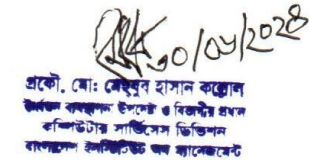 ৩০/০৬/২০২৪
প্রকৌ. মো: মেহবুব হাসান কল্লোল
ঊর্ধ্বতন ব্যবস্থাপনা উপদেষ্টা ও বিভাগীয় প্রধান
কম্পিউটার সার্ভিসেস ডিভিশন
বাংলাদেশ ইনস্টিটিউট অব ম্যানেজমেন্ট